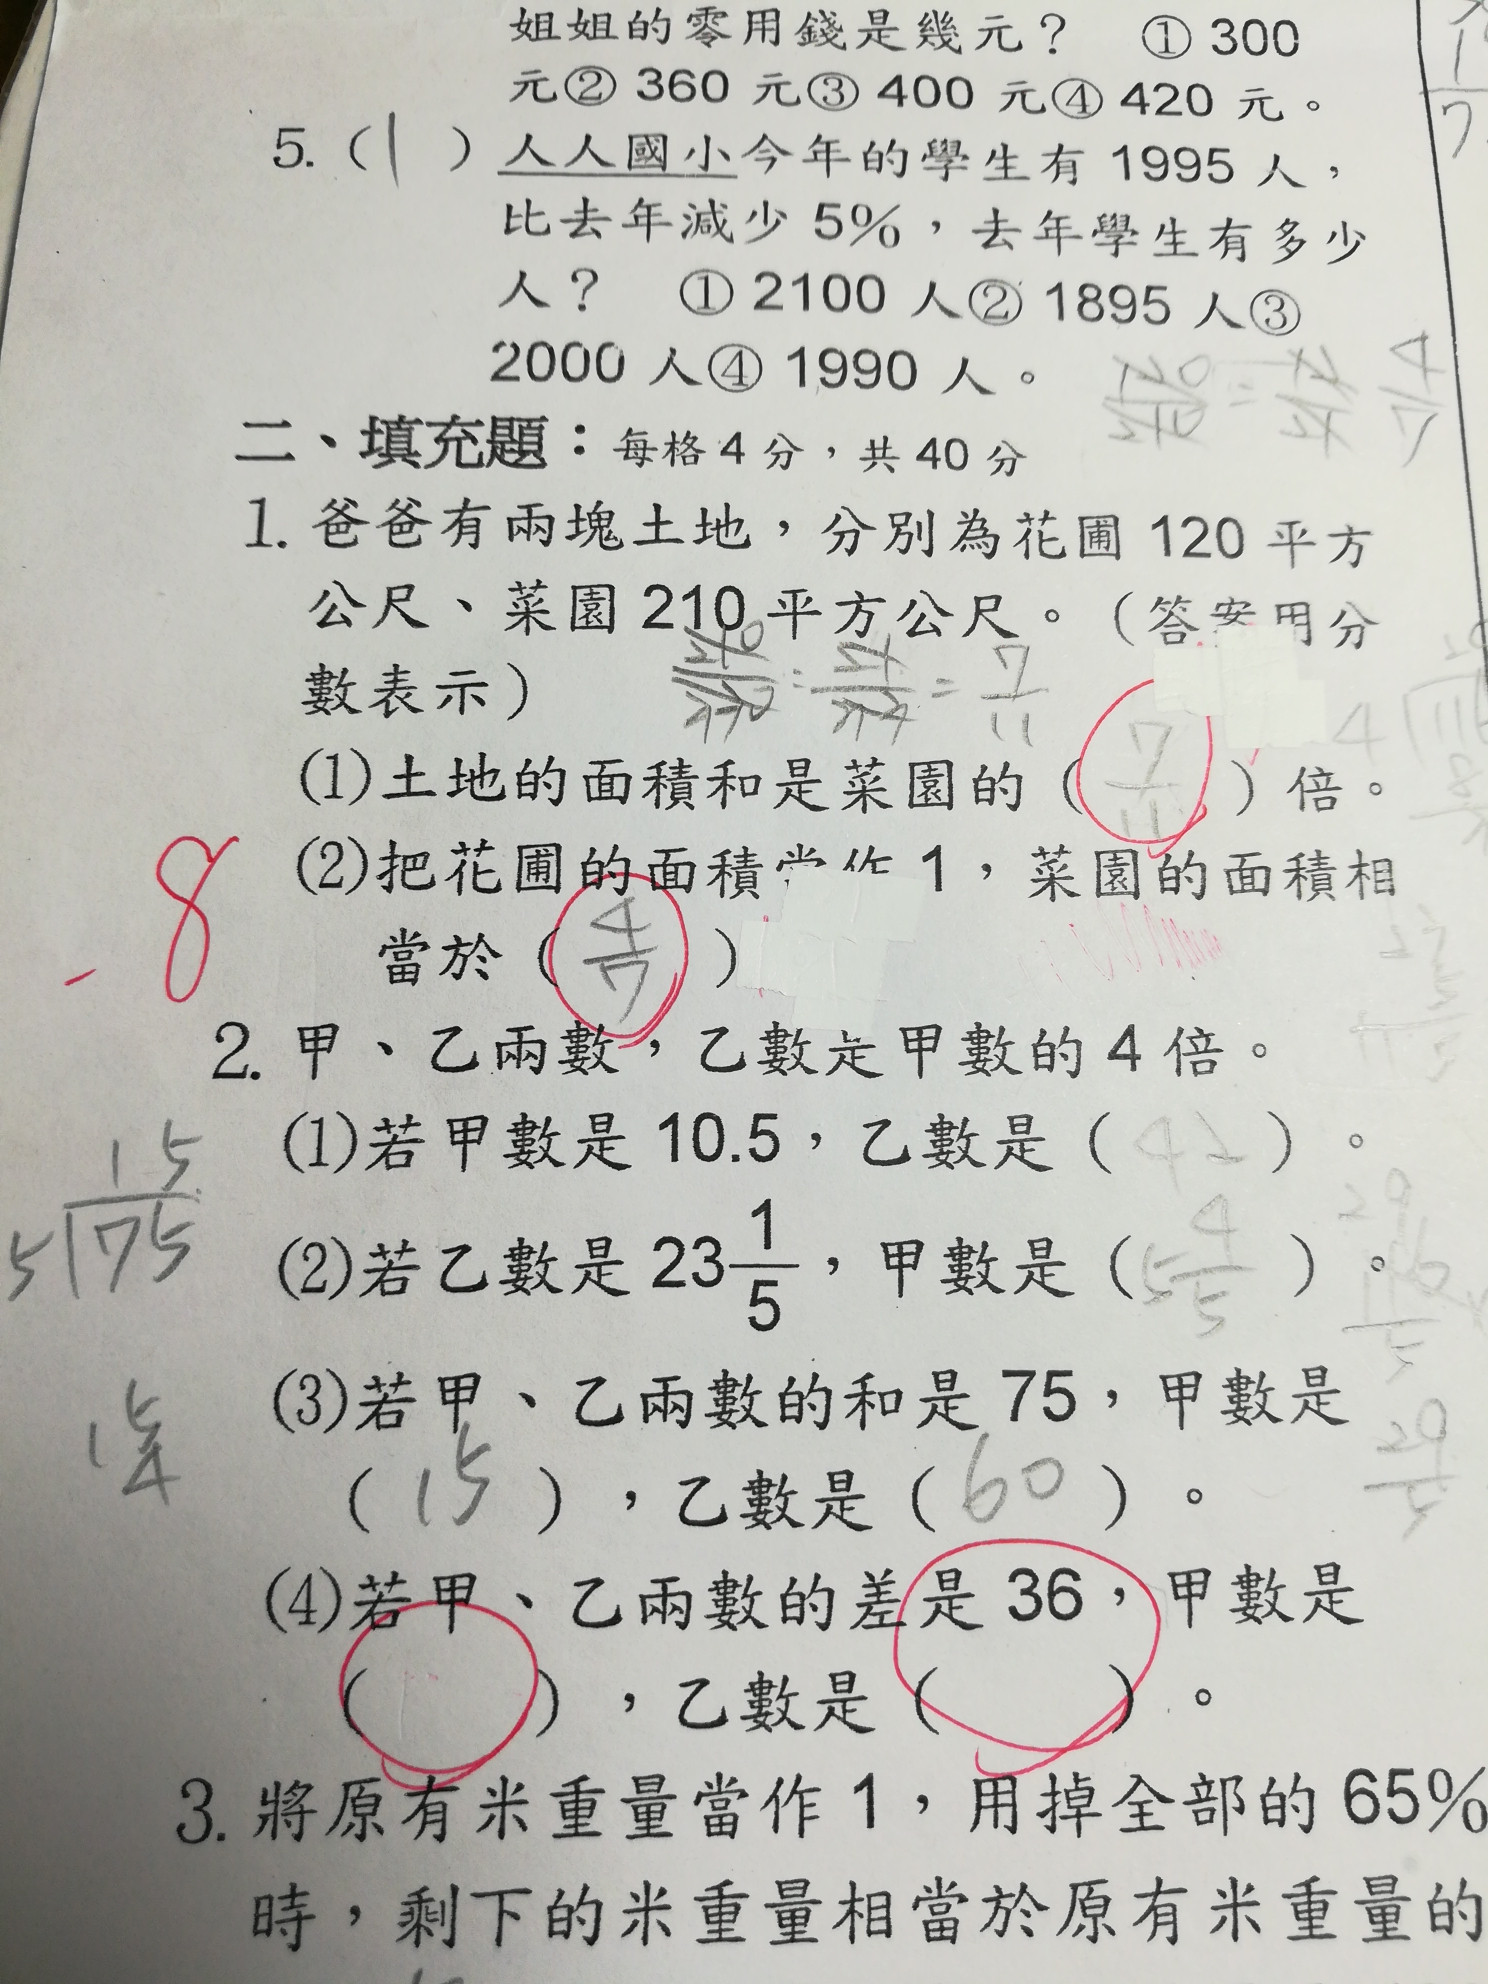 姐姐的零用錢是幾元？ ① 300
元② 360 元③ 400 元④ 420 元。
5.（1）人人國小今年的學生有 1995 人，
比去年減少 5%，去年學生有多少
人？ ① 2100 人② 1895 人③
2000 人④ 1990 人。
二、填充題：每格 4 分，共 40 分
1. 爸爸有兩塊土地，分別為花圃 120 平方
公尺、菜園 210 平方公尺。（答案用分
數表示）
= 7/11
(1)土地的面積和是菜園的（7/11）倍。
-8
(2)把花圃的面積當作 1，菜園的面積相
當於（4/7）
2. 甲、乙兩數，乙數是甲數的 4 倍。
(1)若甲數是 10.5，乙數是（42）。
15
5 75
(2)若乙數是 23 1/5，甲數是（5 4/5）。
(3)若甲、乙兩數的和是 75，甲數是
（15），乙數是（60）。
(4)若甲、乙兩數的差是 36，甲數是
（ ），乙數是（ ）。
3. 將原有米重量當作 1，用掉全部的 65%
時，剩下的米重量相當於原有米重量的